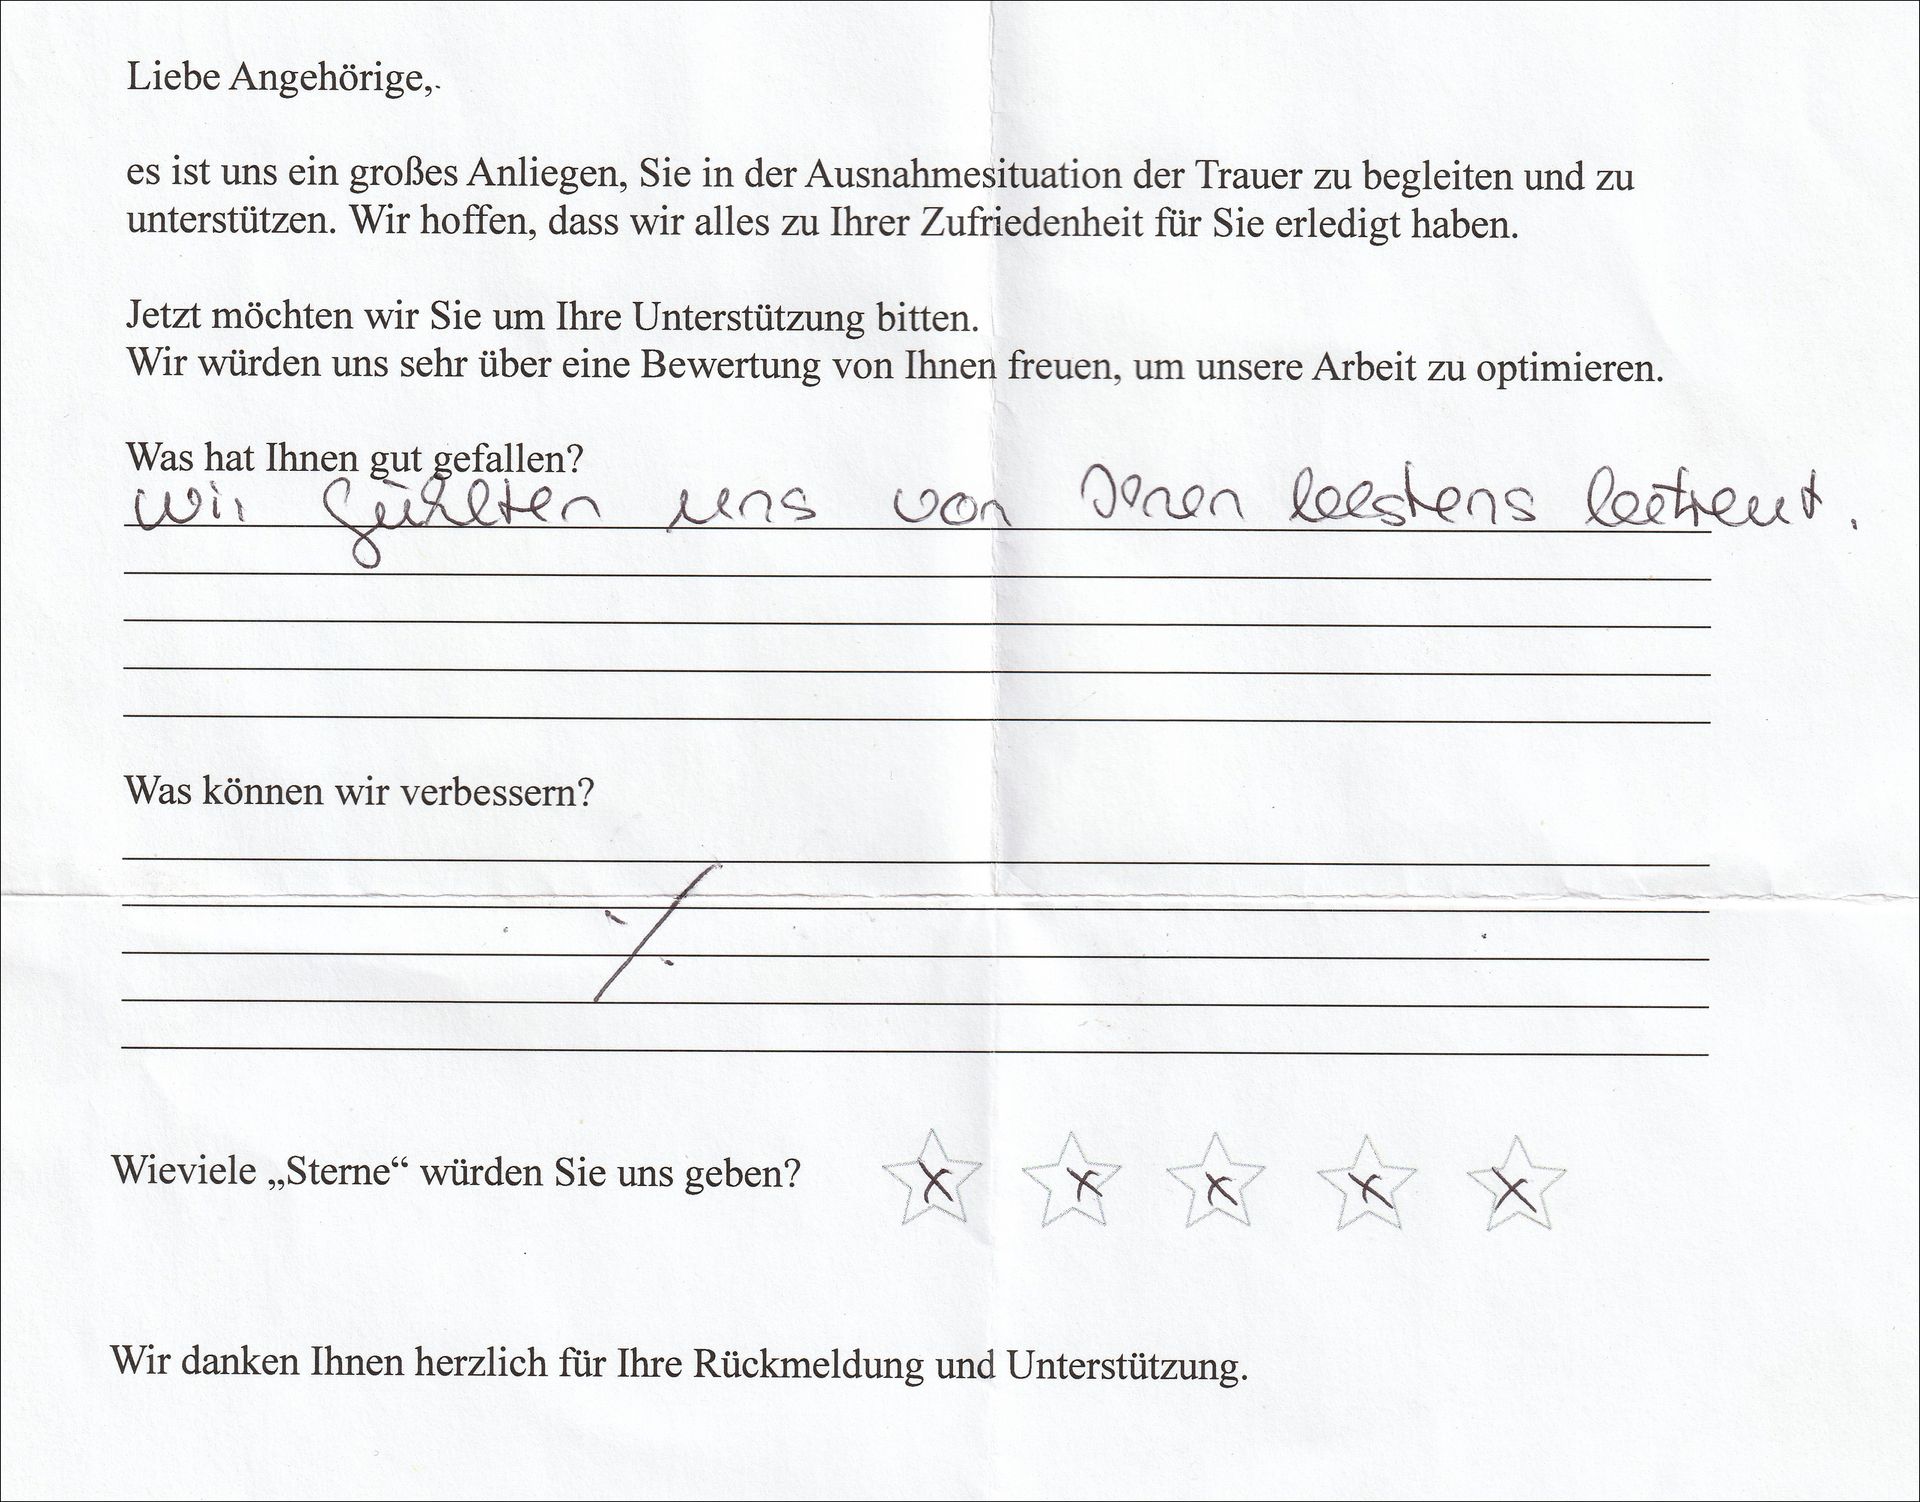 Liebe Angehörige,.
es ist uns ein großes Anliegen, Sie in der Ausnahmesituation der Trauer zu begleiten und zu
unterstützen. Wir hoffen, dass wir alles zu Ihrer Zufriedenheit für Sie erledigt haben.
Jetzt möchten wir Sie um Ihre Unterstützung bitten.
Wir würden uns sehr über eine Bewertung von Ihnen freuen, um unsere Arbeit zu optimieren.
Was hat Ihnen gut gefallen?
Wir fühlten uns von Ihnen bestens betreut.
Was können wir verbessern?
./.
Wieviele „Sterne“ würden Sie uns geben? x x x x x
Wir danken Ihnen herzlich für Ihre Rückmeldung und Unterstützung.